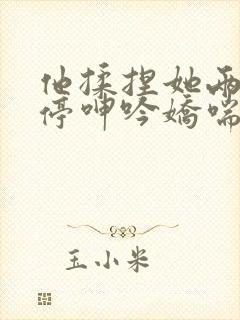 他揉捏她两
停呻吟娇喘
玉小米